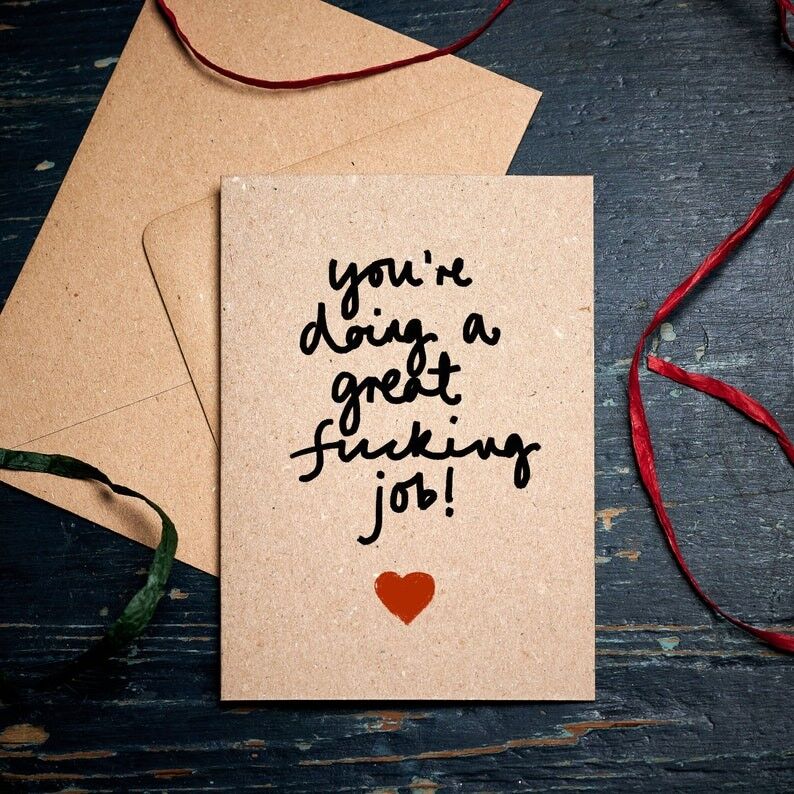 you're
doing a
great
fucking
job!